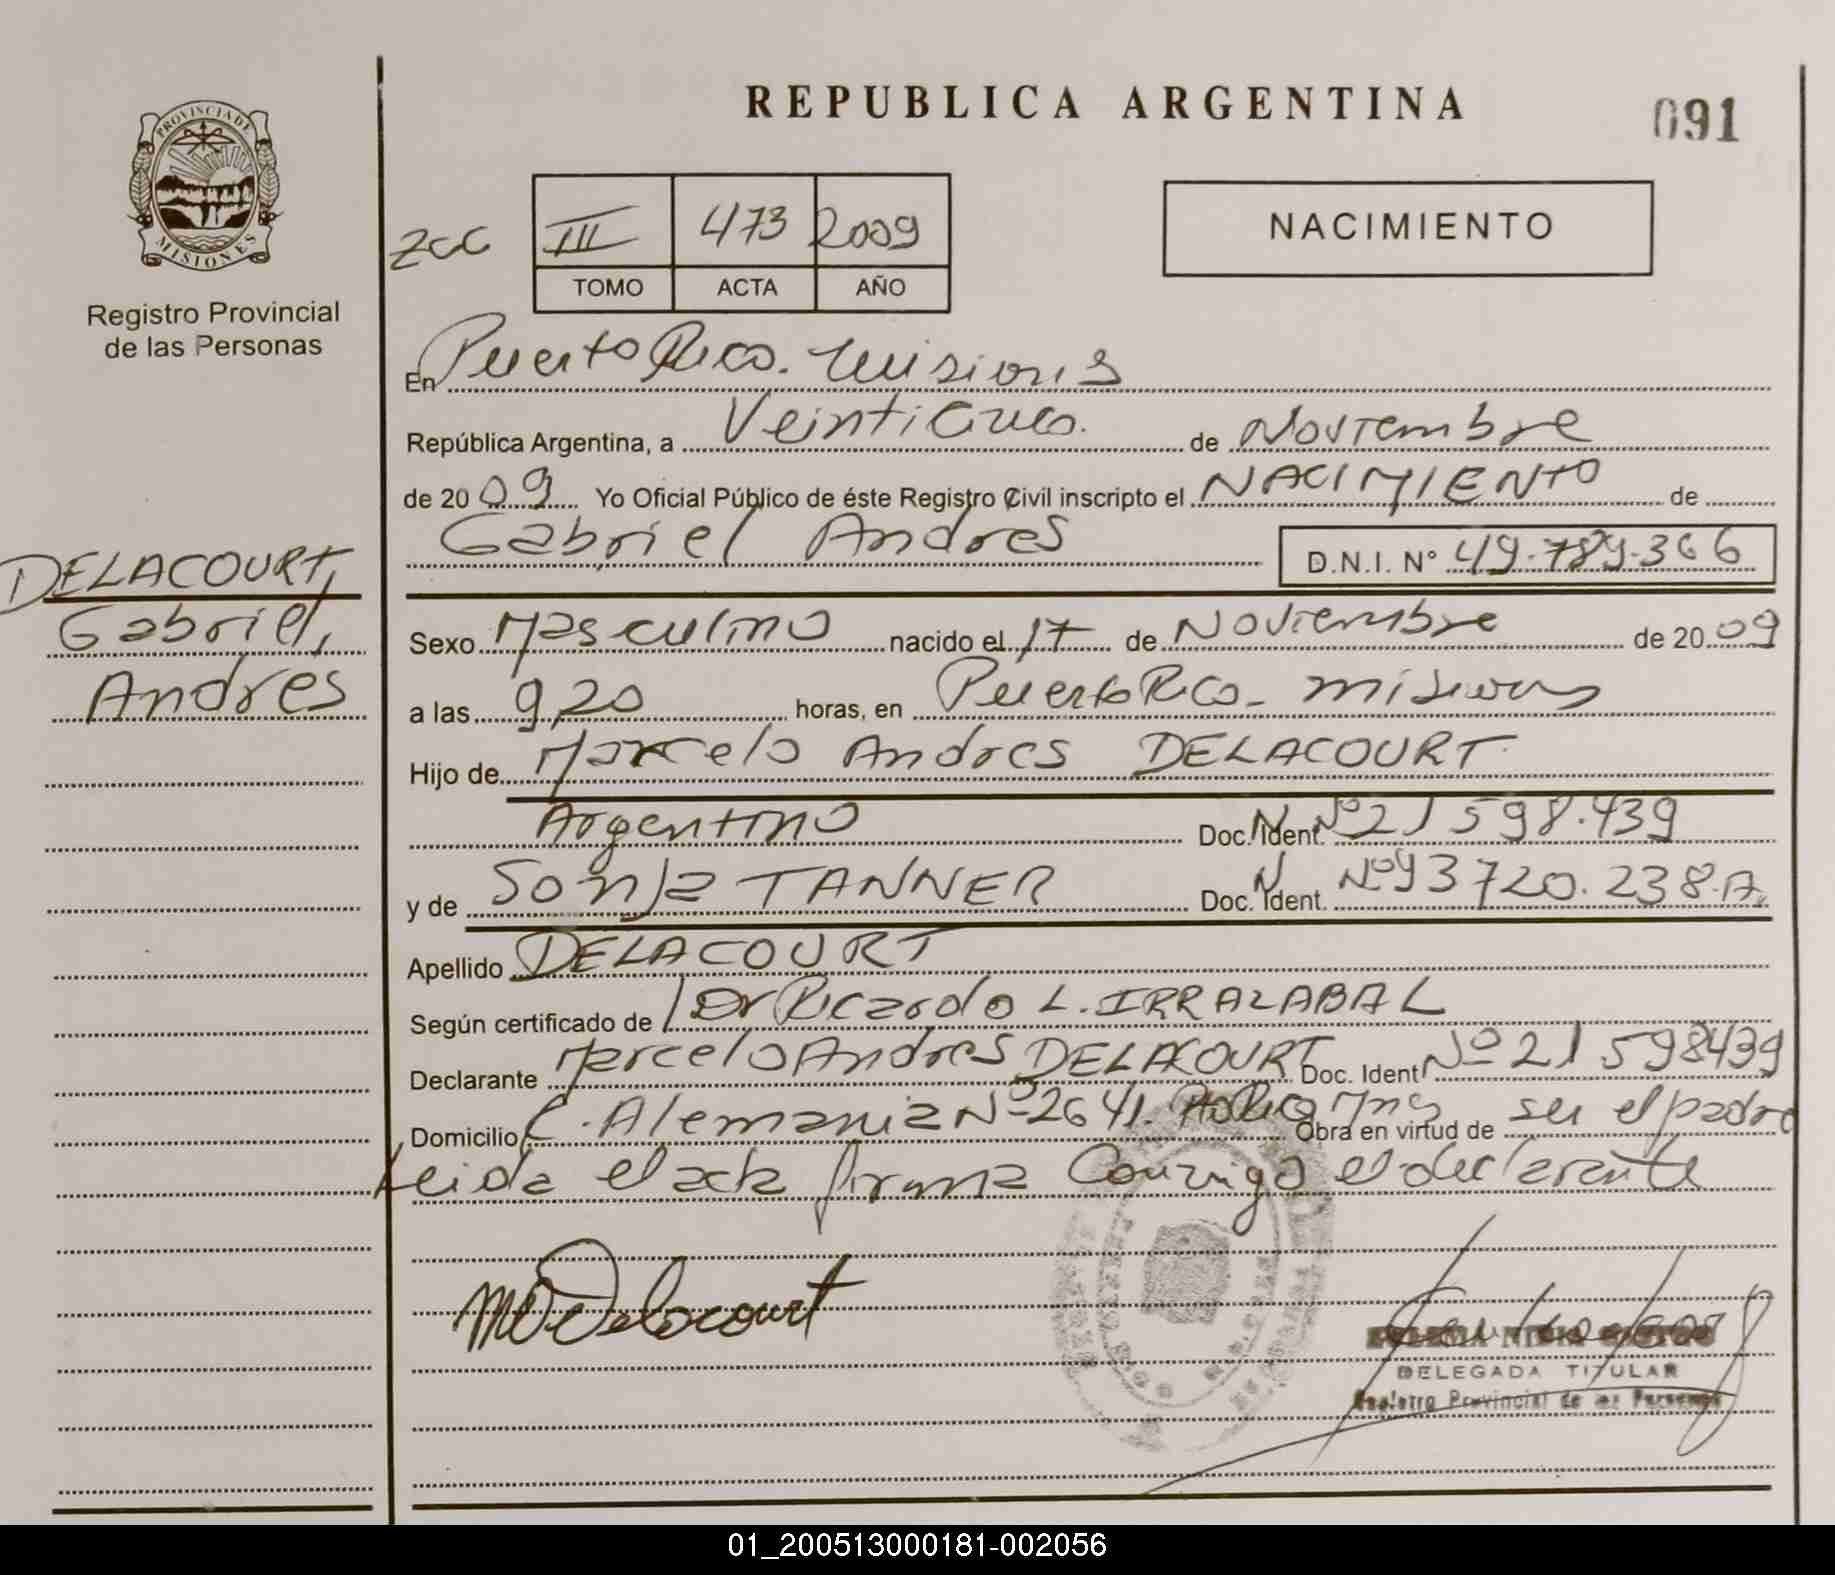 REPUBLICA ARGENTINA
091
PROVINCIA DE
MISIONES
Registro Provincial
de las Personas
ZCC
III 473 2009
TOMO ACTA AÑO
NACIMIENTO
En Puerto Rico. Misiones
República Argentina, a Veinticinco. de Noviembre
de 20 09 Yo Oficial Público de éste Registro Civil inscripto el NACIMIENTO de
Gabriel Andres D.N.I. Nº 49.789.366
DELACOURT,
Gabriel,
Andrés
Sexo Masculino nacido el 17 de Noviembre de 20 09
a las 9,20 horas, en Puerto Rico - Misiones
Hijo de Marcelo Andres DELACOURT
Argentino Doc. Ident. Nº 21 598.439
y de Sonja TANNER Doc. Ident. Nº 93 720.238.A.
Apellido DELACOURT
Según certificado de Dr Ricardo L. IRRALABAL
Declarante Marcelo Andres DELACOURT Doc. Ident Nº 21 598439
Domicilio C. Alemania Nº 2641. Pto Rico Mns Obra en virtud de ser el padre
Leida el acta firma Conmigo el declarante
Delacourt
DELEGADA TITULAR
Registro Provincial de las Personas
01_200513000181-002056